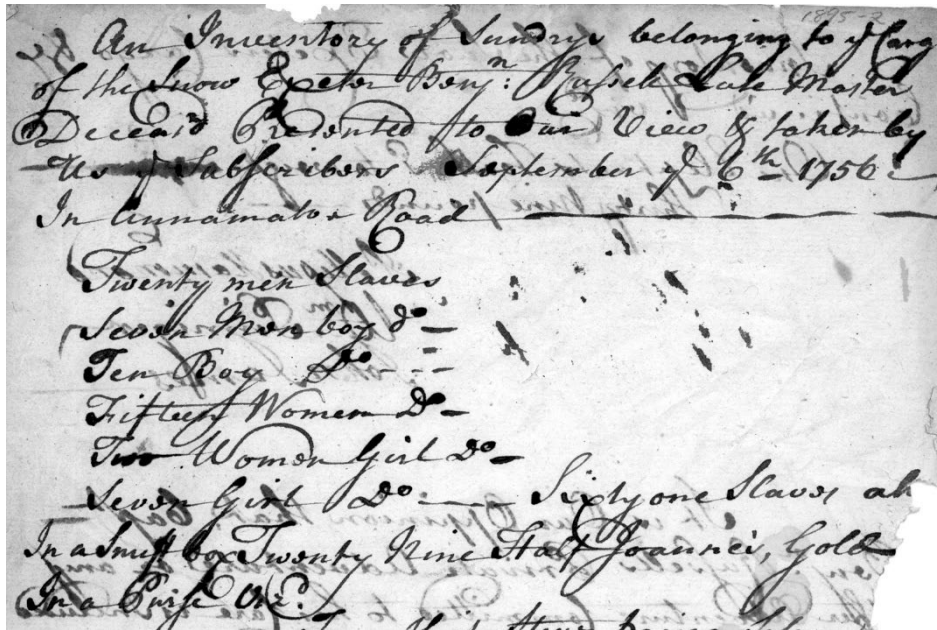 1895-2
An Inventory of Sundrys belonging to ye Carg
of the Snow Exeter Benjn: Russell Late Master
Deceasd Presented to Our View & taken by
Us ye Subscribers September ye 6th 1756:
In Annamaboe Road
Twenty men Slaves
Seven Men boy Do
Ten Boy Do
Fifteen Women Do
Two Women Girl Do
Seven Girl Do Sixty one Slaves
In a Snuff box Twenty Nine Half Joannes, Gold
In a Purse